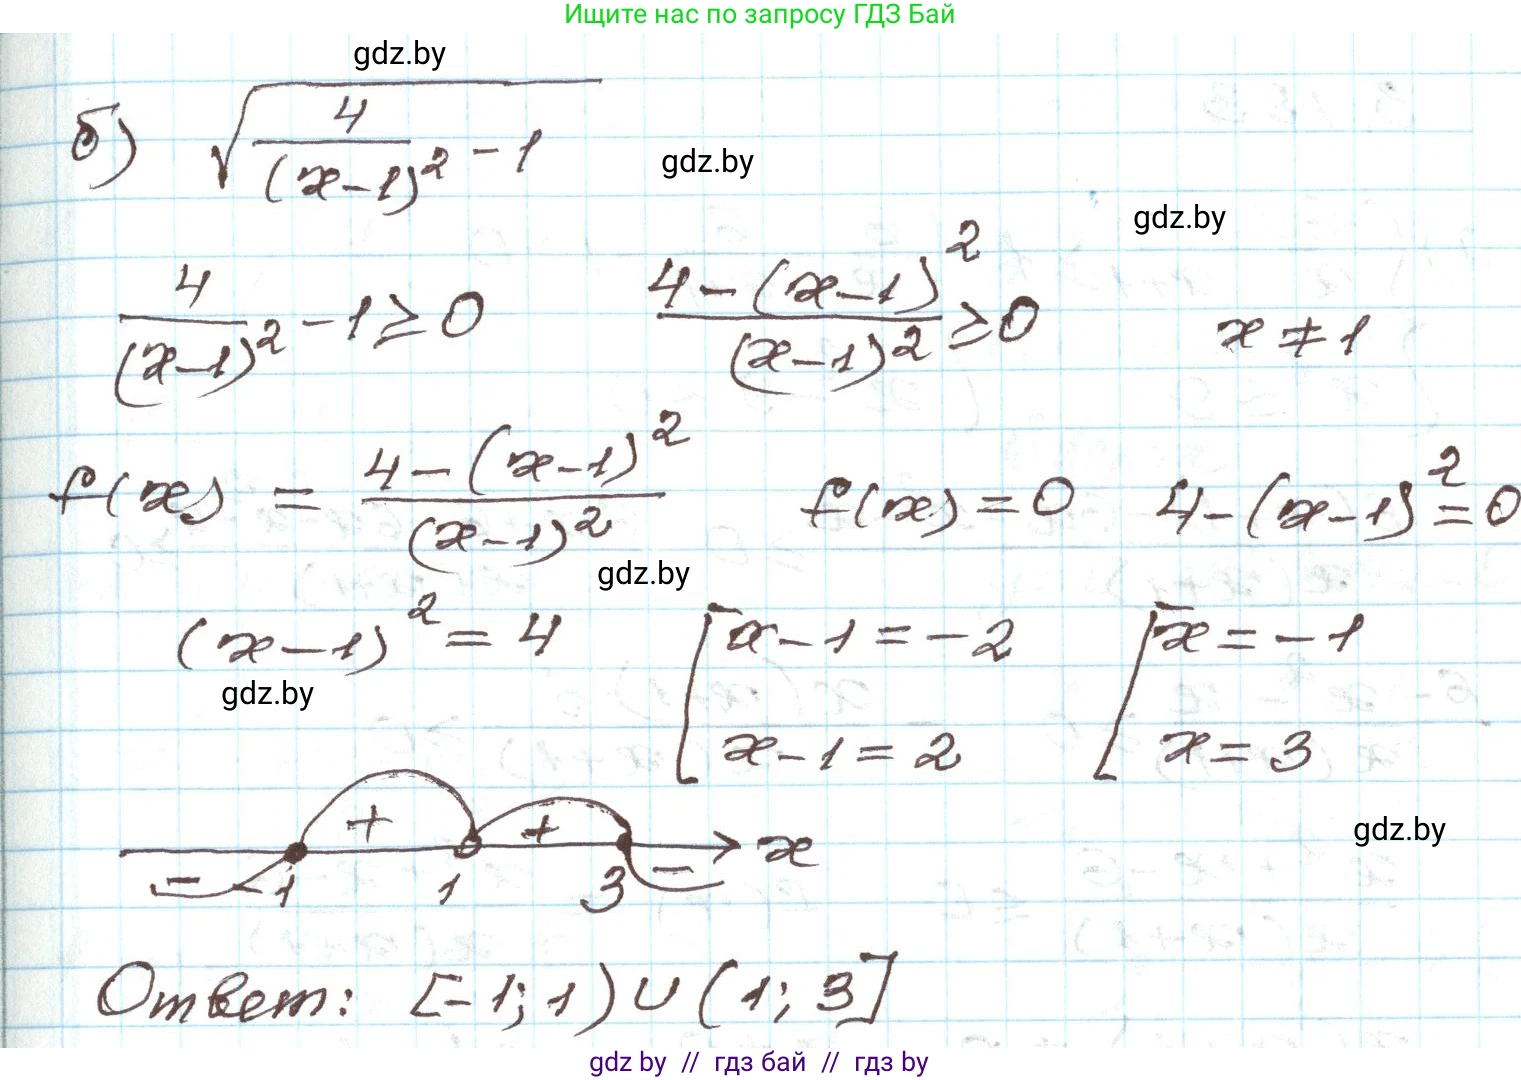 Ищите нас по запросу ГДЗ Бай
gdz.by
б) √(4/(x-1)² - 1)
gdz.by
gdz.by
4/(x-1)² - 1 ≥ 0   (4-(x-1)²)/(x-1)² ≥ 0   x ≠ 1
f(x) = (4-(x-1)²)/(x-1)²   f(x) = 0   4-(x-1)² = 0
gdz.by
(x-1)² = 4   [x-1 = -2   [x = -1
gdz.by
x-1 = 2   x = 3
gdz.by
+ + x
- -1 1 3 -
Ответ: [-1; 1) ∪ (1; 3]
gdz.by // гдз бай // гдз.by